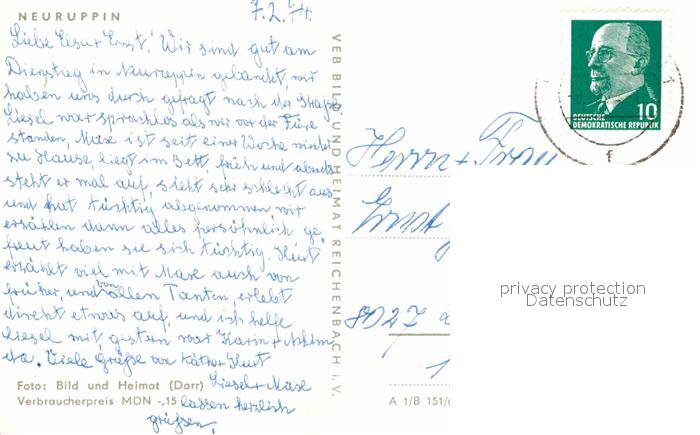 NEURUPPIN
7.2.74.
Liebe Elsa + Ernst! Wir sind gut am
Dienstag in Neuruppin gelandet, wir
haben uns durch gefragt nach der Straße
Liesel war sprachlos als wir vor der Türe
standen, Maxe ist seit einer Woche wieder
zu Hause, liegt im Bett, früh und abends
steht er mal auf, sieht sehr schlecht aus
und hat tüchtig abgenommen, wir
erzählen dann alles persönlich ge-
freut haben sie sich tüchtig. Kurt
erzählt viel mit Maxe auch von
früher, und von allen Tanten, erlebt
direkt etwas auf, und ich helfe
Liesel mit, gestern war Karin +
da. Viele Grüße von Käthe + Kurt
Liesel + Maxe
lassen herzlich
grüßen.
Foto: Bild und Heimat (Darr)
Verbraucherpreis MDN -,15
VEB BILD UND HEIMAT REICHENBACH i. V.
A 1/B 151/
Herrn + Frau
Ernst
8027
1
DEUTSCHE
DEMOKRATISCHE REPUBLIK
10
f
privacy protection
Datenschutz